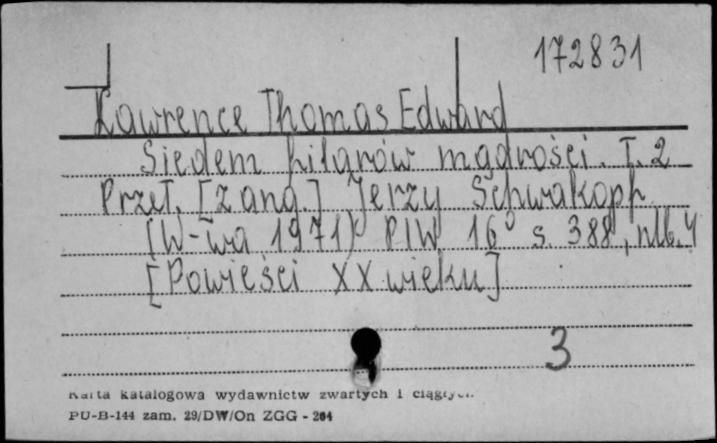 172831
Lawrence Thomas Edward
Siedem filarów mądrości. T. 2
Przeł. [z ang.] Jerzy Schwakoph
(W-wa 1971) PIW 16° s. 388, nlb. 4
[Powieści XX wieku]
3
Karta katalogowa wydawnictw zwartych i ciągłych.
PU-B-144 zam. 29/DW/On ZGG - 264